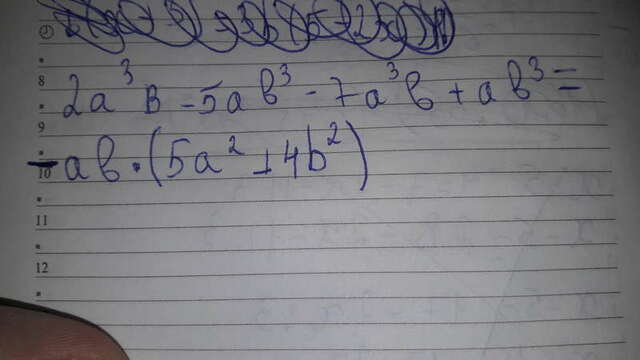 8
2a³b - 5ab³ - 7a³b + ab³ =
9
-ab·(5a² + 4b²)
10
11
12